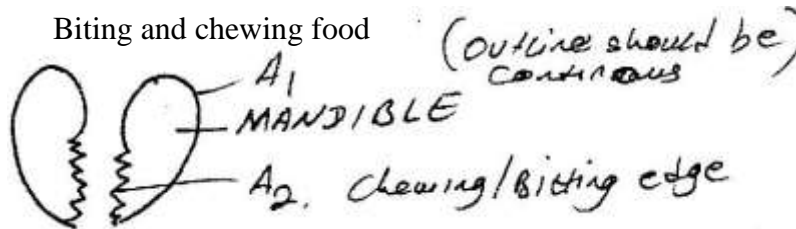 Biting and chewing food
(Outline should be)
continous
A1
MANDIBLE
A2. Chewing/Bitting edge